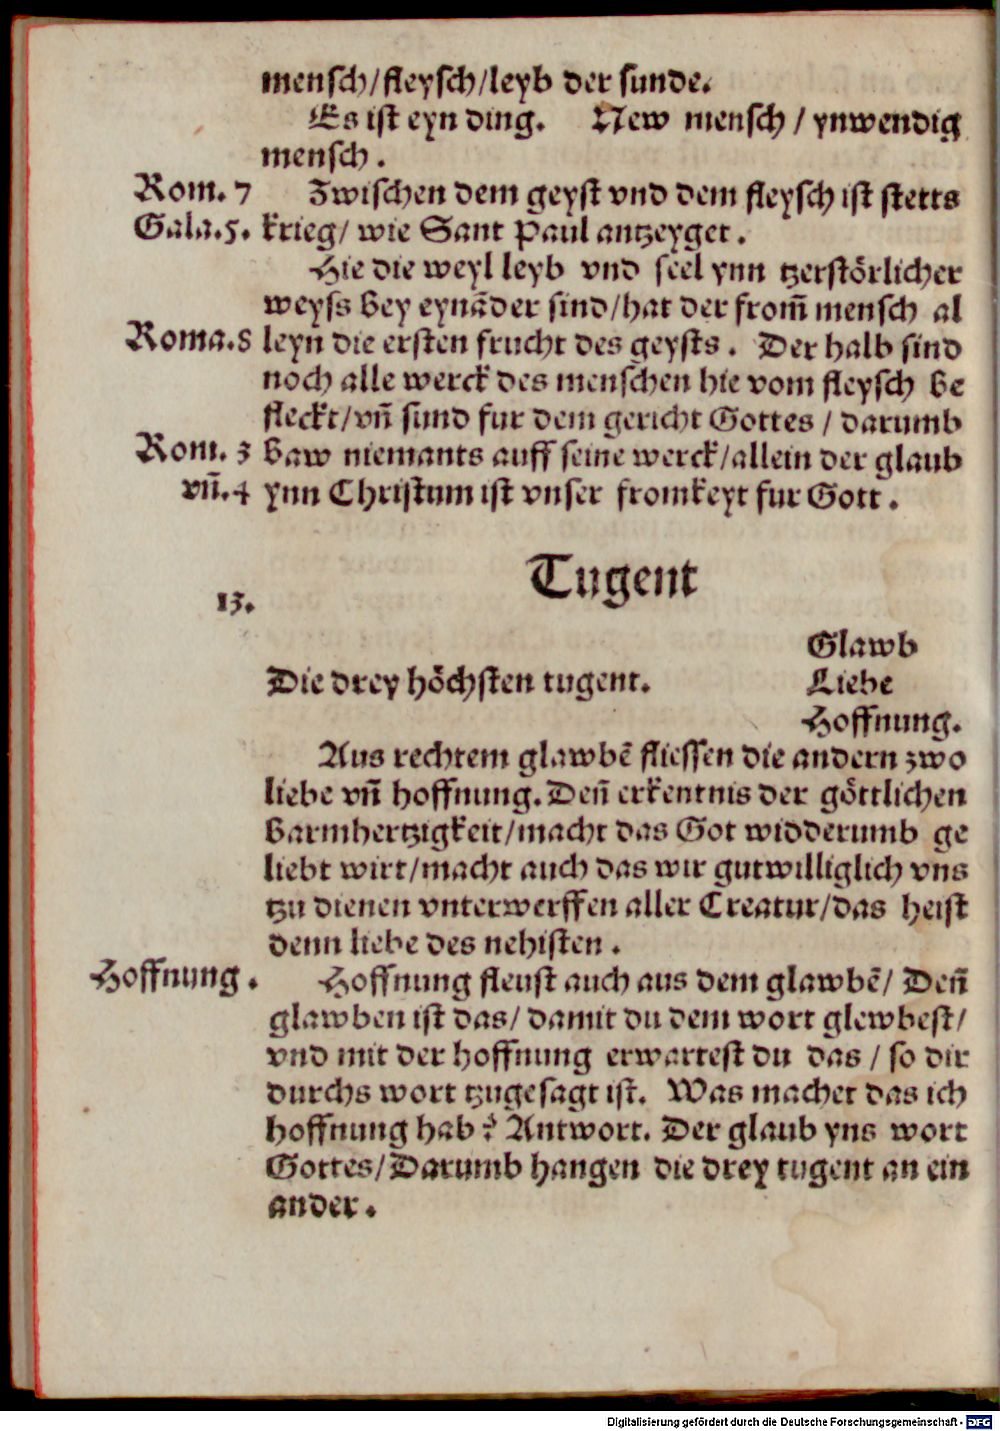 mensch/fleysch/leyb der sunde.
Es ist eyn ding. New mensch / ynwendig
mensch.
Rom. 7 Zwischen dem geyst vnd dem fleysch ist stetts
Gala. 5. krieg/ wie Sant Paul antzeyget.
Hie die weyl leyb vnd seel ynn tzerstörlicher
weyss bey eynãder sind/hat der from̃ mensch al
Roma. 8 leyn die ersten frucht des geysts. Der halb sind
noch alle werck des menschen hie vom fleysch be
fleckt/vñ sund fur dem gericht Gottes / darumb
Rom. 3 baw niemants auff seine werck/allein der glaub
vñ. 4 ynn Christum ist vnser fromkeyt fur Gott.
Tugent
13.
Glawb
Die drey höchsten tugent. Liebe
Hoffnung.
Aus rechtem glawbẽ fliessen die andern zwo
liebe vñ hoffnung. Deñ erkentnis der göttlichen
barmhertzigkeit/macht das Got widderumb ge
liebt wirt/macht auch das wir gutwilliglich vns
tzu dienen vnterwerffen aller Creatur/das heist
denn liebe des nehisten.
Hoffnung. Hoffnung fleust auch aus dem glawbẽ/ Deñ
glawben ist das/ damit du dem wort glewbest/
vnd mit der hoffnung erwartest du das / so dir
durchs wort tzugesagt ist. Was machet das ich
hoffnung hab? Antwort. Der glaub yns wort
Gottes/Darumb hangen die drey tugent an ein
ander.
Digitalisierung gefördert durch die Deutsche Forschungsgemeinschaft - DFG